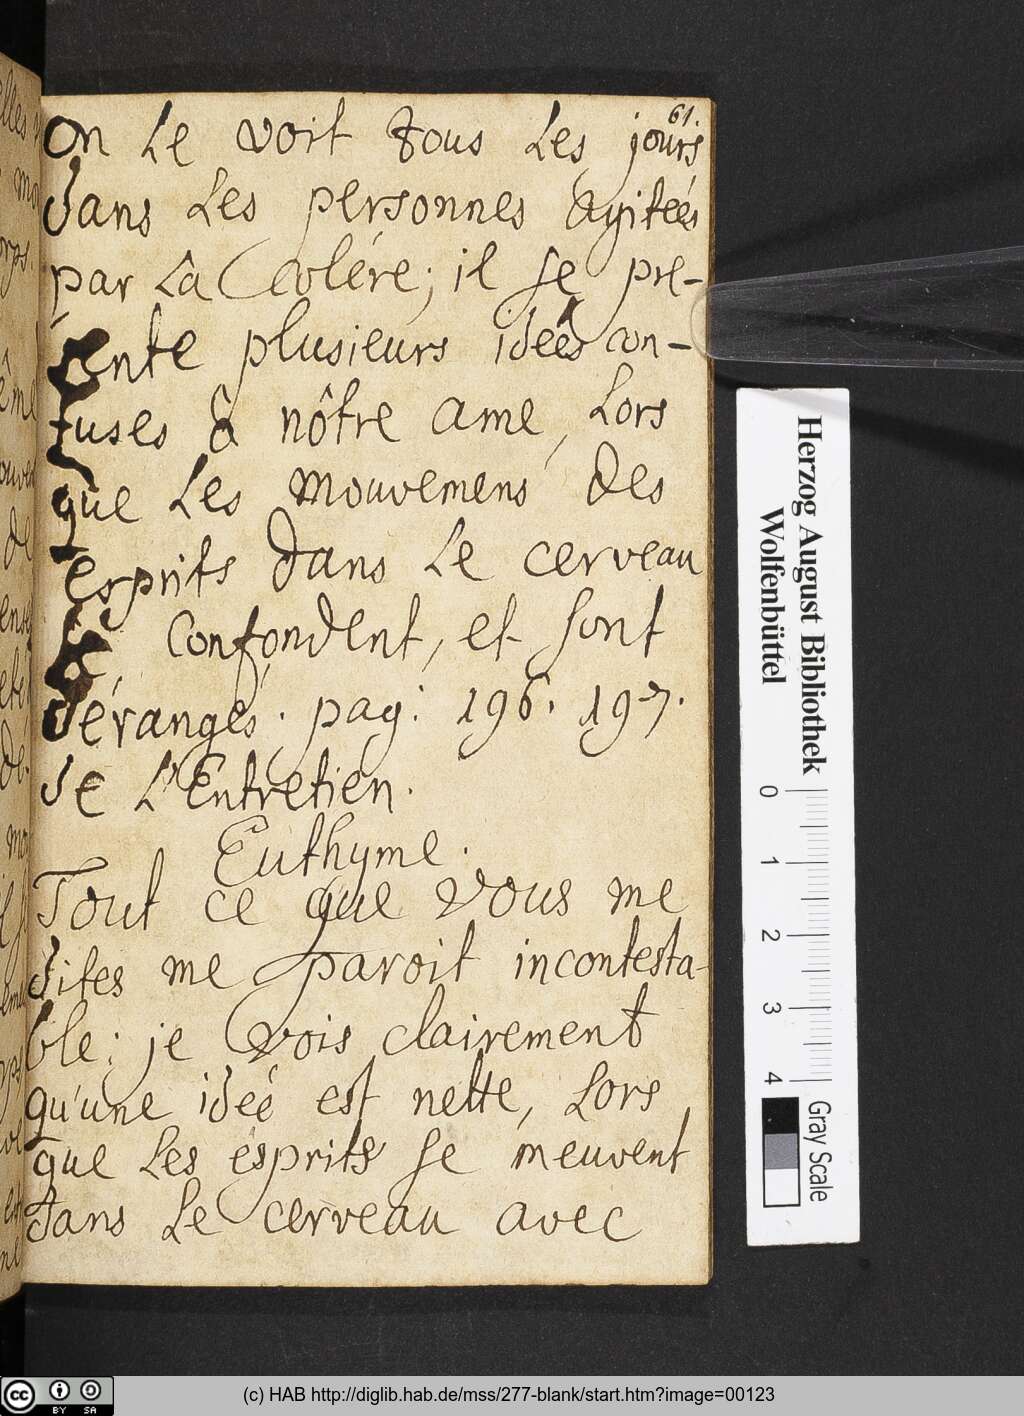 61.
on le voit tous les jours
dans les personnes agitées
par la Colére; il se pre-
sente plusieurs ideés con-
fuses à nôtre ame, lors
que les mouvemens des
esprits dans le cerveau
se confondent, et sont
dérangés. pag: 196. 197.
de L'Entretien.
Euthyme.
Tout ce que vous me
dites me paroit incontesta-
ble: je vois clairement
qu'une ideé est nette, lors
que les esprits se meuvent
dans le cerveau avec
Herzog August Bibliothek
Wolfenbüttel
0 1 2 3 4
Gray Scale
cc BY SA
(c) HAB http://diglib.hab.de/mss/277-blank/start.htm?image=00123